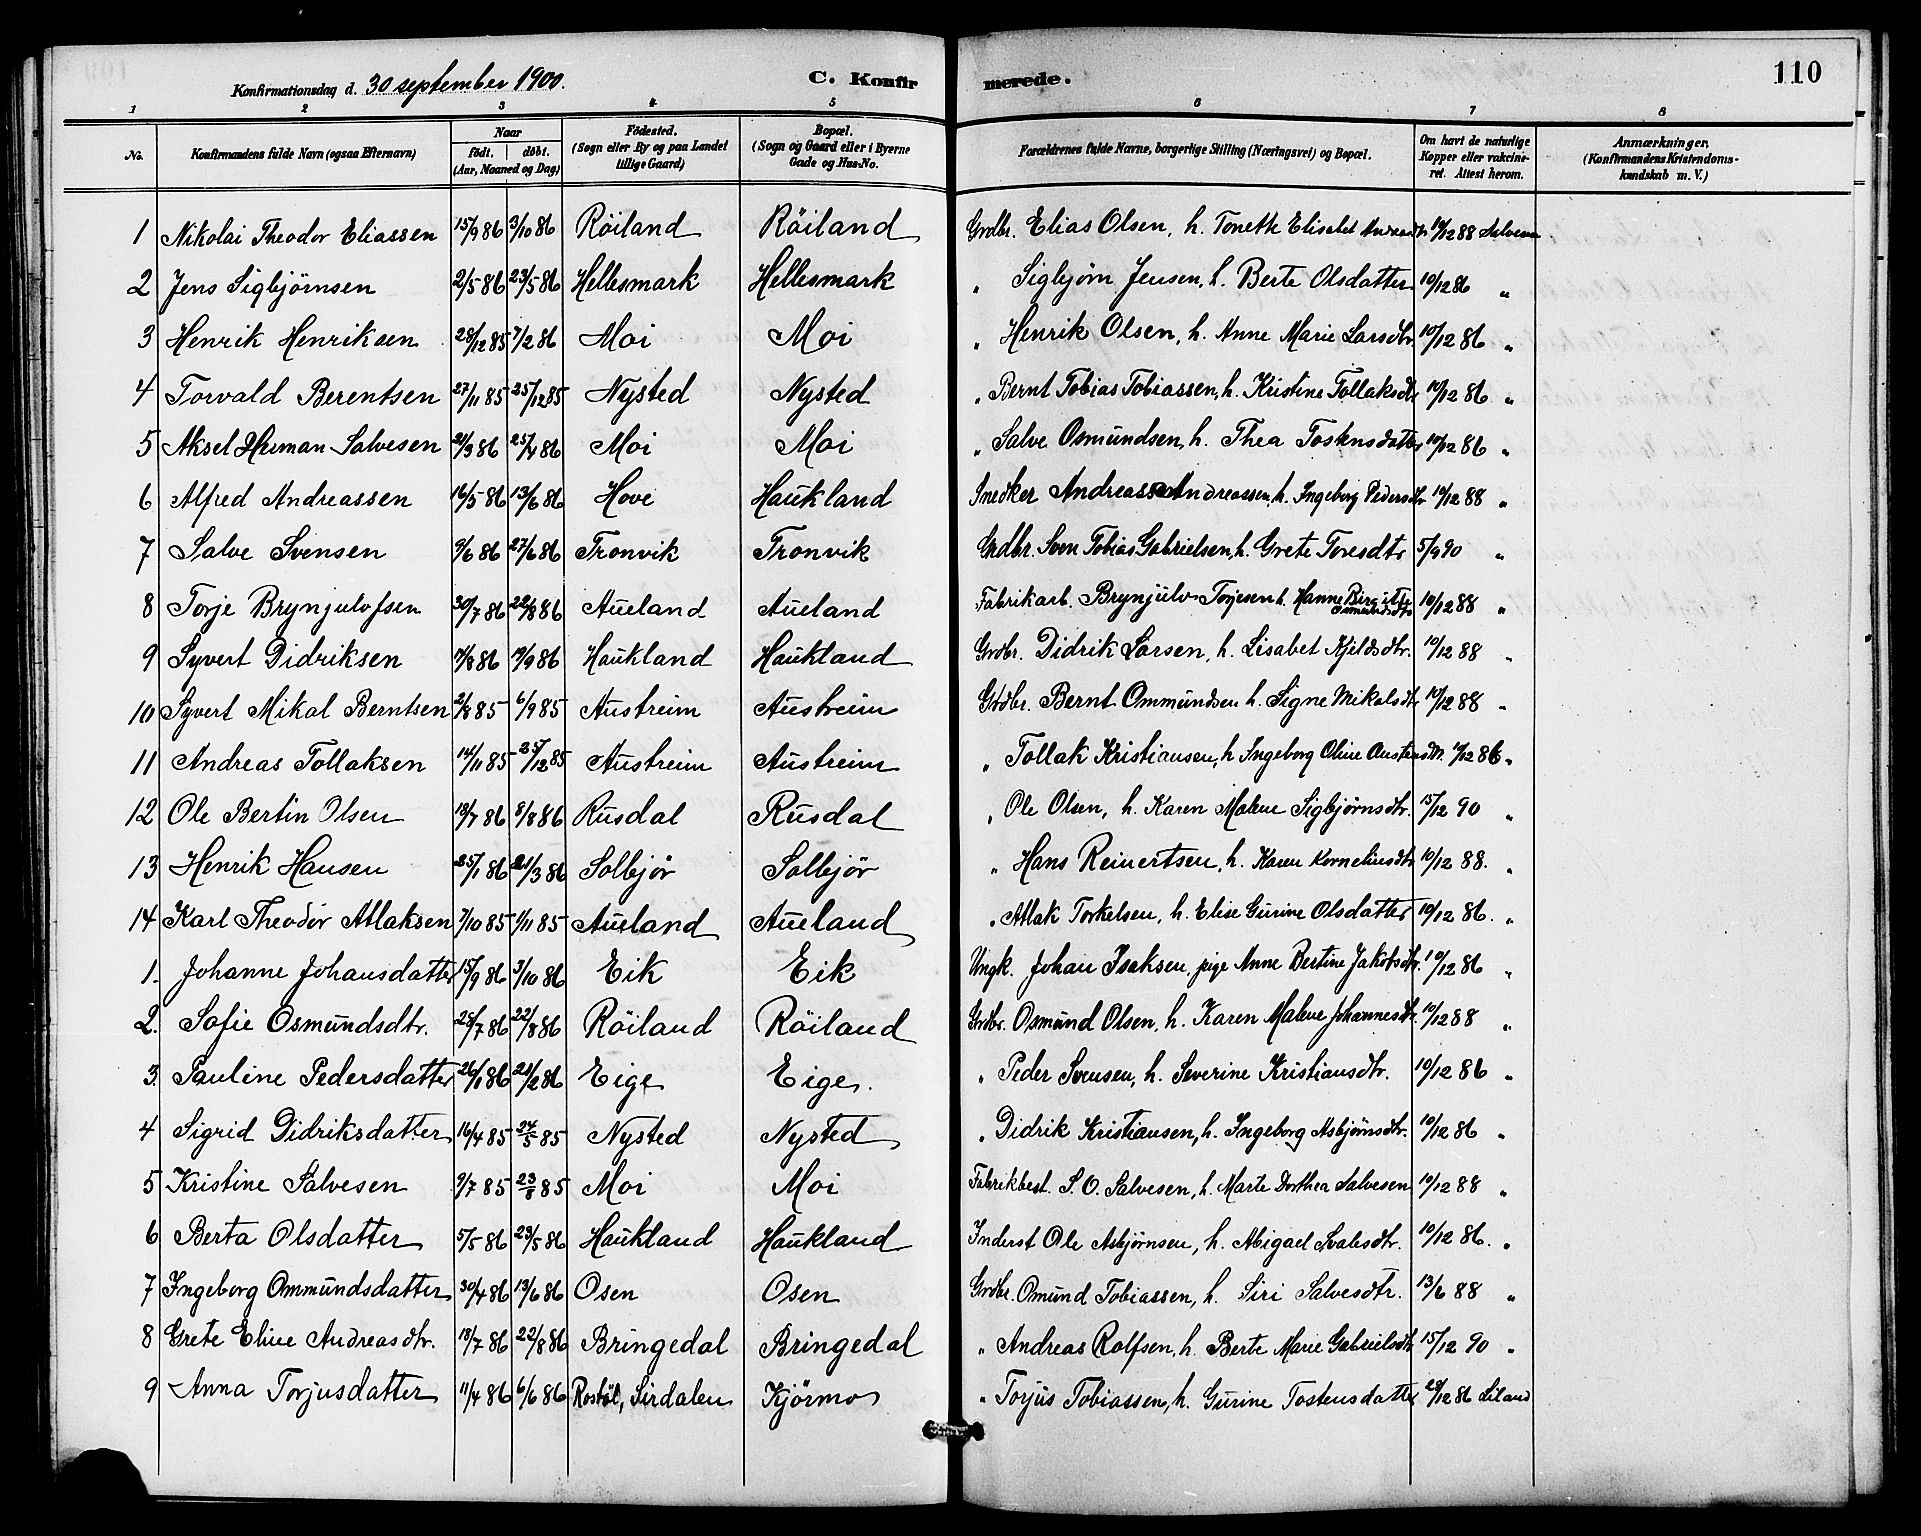 110
Konfirmationsdag d. 30 september 1900. C. Konfirmerede.
1 2 3 4 5 6 7 8
No. Konfirmandens fulde Navn (ogsaa Efternavn) Naar født. døbt. (Aar, Maaned og Dag) Fødested. (Sogn eller By og paa Landet tillige Gaard) Bopæl. (Sogn og Gaard eller i Byerne Gade og Hus-No. Forældrenes fulde Navne, borgerlige Stilling (Næringsvei) og Bopæl. Om havt de naturlige Kopper eller vakcineret. Attest herom. Anmærkninger. (Konfirmandens Kristendomskundskab m. V.)
1 Nikolai Theodor Eliassen 15/9 86 3/10 86 Röiland Röiland Grdbr. Elias Olsen, h. Tonette Elisabet 10/12 88 Salvesen
2 Jens Sigbjørnsen 2/5 86 23/5 86 Hellesmark Hellesmark " Sigbjørn Jensen, h. Berte Olsdatter 10/12 86 "
3 Henrik Henriksen 28/12 85 7/2 86 Moi Moi " Henrik Olsen, h. Anne Marie Larsdtr 10/12 86 "
4 Torvald Berentsen 27/11 85 25/12 85 Nysted Nysted " Bernt Tobias Tobiassen, h. Kristine Tollaksdtr 10/12 86 "
5 Aksel Herman Salvesen 21/3 86 25/4 86 Moi Moi " Salve Osmundsen, h. Thea Tostensdatter 10/12 86 "
6 Alfred Andreassen 16/5 86 13/6 86 Hove Haukland Snedker Andreas Andreassen, h. Ingeborg Pedersdtr 10/12 88 "
7 Salve Svensen 9/6 86 27/6 86 Tronvik Tronvik Grdbr. Sven Tobias Gabrielsen, h. Grete Toresdtr 5/9 90 "
8 Torje Brynjulofsen 30/7 86 22/8 86 Aueland Aueland Fabrikarb. Brynjulv Torjesen h. Hanne Birgitte Osmundsdtr 10/12 88 "
9 Syvert Didriksen /8 86 19/9 86 Haukland Haukland Grdbr. Didrik Larsen, h. Lisabet Kjeldsdtr. 10/12 88 "
10 Syvert Mikal Berntsen 2/8 85 6/9 85 Austreim Austreim Grdbr. Bernt Ommundsen h. Signe Mikalsdtr 10/12 88 "
11 Andreas Tollaksen 14/11 85 25/12 85 Austreim Austreim " Tollak Kristiansen, h Ingeborg Oline Austensdtr. 10/12 86 "
12 Ole Bertin Olsen 13/7 86 8/8 86 Rusdal Rusdal " Ole Olsen, h. Karen Malene Sigbjørnsdtr. 15/12 90 "
13 Henrik Hansen 25/1 86 21/3 86 Solbjør Solbjör " Hans Reinertsen, h. Karen Korneliusdtr 10/12 88. "
14 Karl Theodor Atlaksen 7/10 85 1/11 85 Aueland Aueland " Atlak Torkelsen, h. Elise Gurine Olsdatter 10/12 86. "
1. Johanne Johansdatter 15/9 86 3/10 86 Eik Eik Ungk. Johan Isaksen, pige Anne Bertine Jakobsdtr. 10/12 86 "
2. Sofie Osmundsdtr. 25/7 86 22/8 86 Röiland Röiland Grdbr. Osmund Olsen, h. Karen Malene Johannesdtr. 10/12 88 "
3. Pauline Pedersdatter 26/1 86 21/2 86 Eige Eige. " Peder Svensen, h. Severine Kristiansdtr. 10/12 86 "
4 Sigrid Didriksdatter 16/4 85 24/5 85 Nysted Nysted " Didrik Kristiansen, h. Ingeborg Asbjørnsdtr. 10/12 86 "
5 Kristine Salvesen 9/7 85 23/8 85 Moi Moi Fabrikbest. S. O. Salvesen, h. Marte Dorthea Salvesen 10/12 88 "
6 Berta Olsdatter 5/5 86 23/5 86 Haukland Haukland Inderst Ole Asbjørnsen, h. Abigael Svalesdtr. 10/12 86. "
7 Ingeborg Ommundsdatter 30/4 86 13/6 86 Osen Osen Grdbr. Omund Tobiassen, h. Siri Salvesdtr. 13/6 88 "
8 Grete Eline Andreasdtr. 18/7 86 22/8 86 Bringedal Bringedal " Andreas Rolfsen, h. Berte Marie Gabrielsdtr 15/12 90 "
9 Anna Torjusdatter 11/4 86 6/6 86 Rostöl, Sirdalen Kjörmo " Torjus Tobiassen, h. Gurine Tostensdatter 28/12 86 Liland